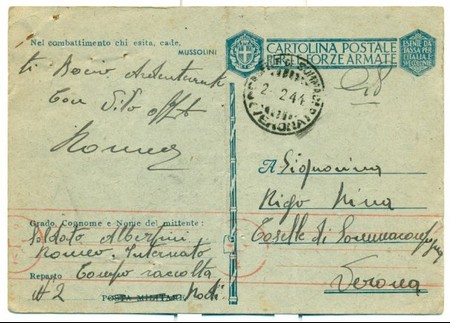 Nel combattimento chi esita, cade.
MUSSOLINI
CARTOLINA POSTALE
FORZE ARMATE
ESENTE DA
TASSA PER
L'ITALIA E
ti Bacio Ardentemente
Con
Romeo
2.2.44
VERONA
A Signorina
Rigo Nina
Caselle di Sommacampagna
Verona
Grado, Cognome e Nome del mittente:
Soldato Albertini
Romeo Internato
Reparto Campo raccolta
N2 POSTA MILITARE Rodi